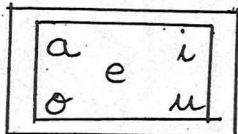 a i
e
o u